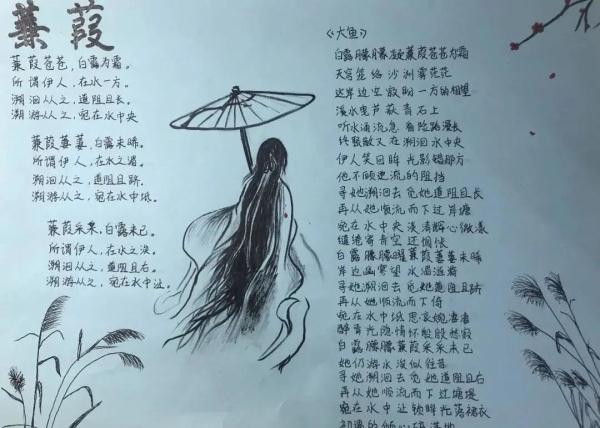 蒹葭
蒹葭苍苍，白露为霜。
所谓伊人，在水一方。
溯洄从之，道阻且长。
溯游从之，宛在水中央
蒹葭萋萋，白露未晞。
所谓伊人，在水之湄。
溯洄从之，道阻且跻。
溯游从之，宛在水中坻。
蒹葭采采，白露未已。
所谓伊人，在水之涘。
溯洄从之，道阻且右。
溯游从之，宛在水中沚。
《大鱼》
白露朦朦凝蒹葭苍苍为霜
天宫笼络沙洲雾茫茫
这岸边空寂盼一方的相望
溪水曳芦荻青石上
听水涌流急 看险路漫长
终须散又在溯洄水中央
伊人笑回眸光影错那方
他不顾逆流的阻挡
寻她溯洄去觅她道阻且长
再从她顺流而下过岸塘
宛在水中央淡清辉心微漾
缱绻寄青空还惆怅
白露朦朦曜蒹葭萋萋未晞
岸边幽寒望水湄涟漪
寻她溯洄去觅她道阻且跻
再从她顺流而下倚
宛在水中坻思哀婉凄凄
醉青光隐情怀殷殷愁寂
白露朦朦蒹葭采采未已
她仍游水没似往昔
寻她溯洄去觅她道阻且右
再从她顺流而下过塘堤
宛在水中让顾眸光落裙衣
的倾心